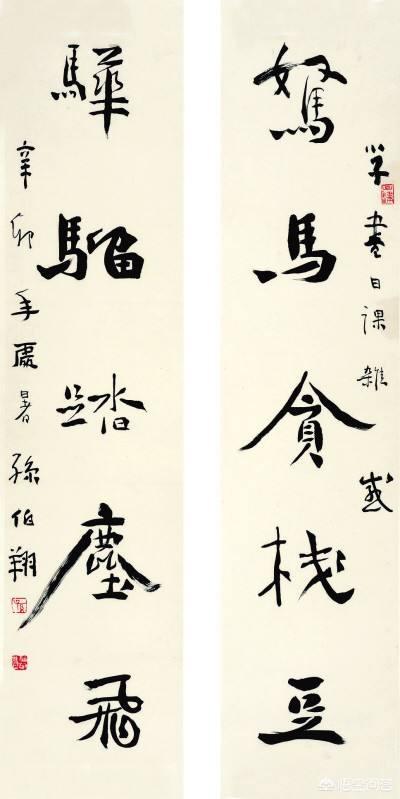 学書日課雜感
駑馬貪栈豆
驊騮踏塵飛
辛卯年處暑孫伯翔
悟空问答